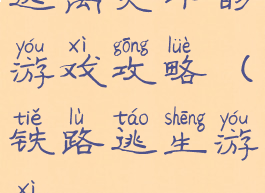 yóu xì gōng lüè
游戏攻略（
tiě lù táo shēng yóu
铁路逃生游
xì